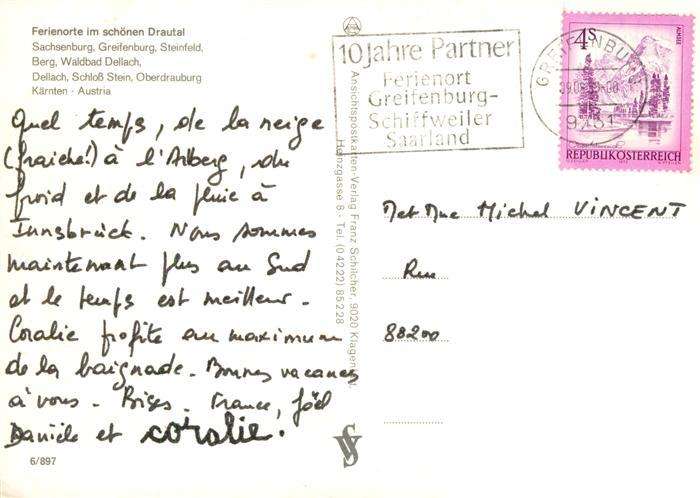 Ferienorte im schönen Drautal
Sachsenburg, Greifenburg, Steinfeld,
Berg, Waldbad Dellach,
Dellach, Schloß Stein, Oberdrauburg
Kärnten - Austria
Quel temps, de la neige
(fraiche!) à l'Arlberg, du
froid et de la pluie à
Innsbrück. Nous sommes
maintenant plus au Sud
et le temps est meilleur.
Coralie profite au maximum
de la baignade. Bonnes vacances
à vous. Bises. France, Joël
Danièle et coralie.
6/897
Ansichtspostkarten-Verlag Franz Schilcher, 9020 Klagenfurt,
Heinzgasse 8 - Tel. (04222) 85228
10 Jahre Partner
Ferienort
Greifenburg-
Schiffweiler
Saarland
GREIFENBURG
9761
4S
ALMSEE
REPUBLIK ÖSTERREICH
M et Mme Michel VINCENT
Rue
88200